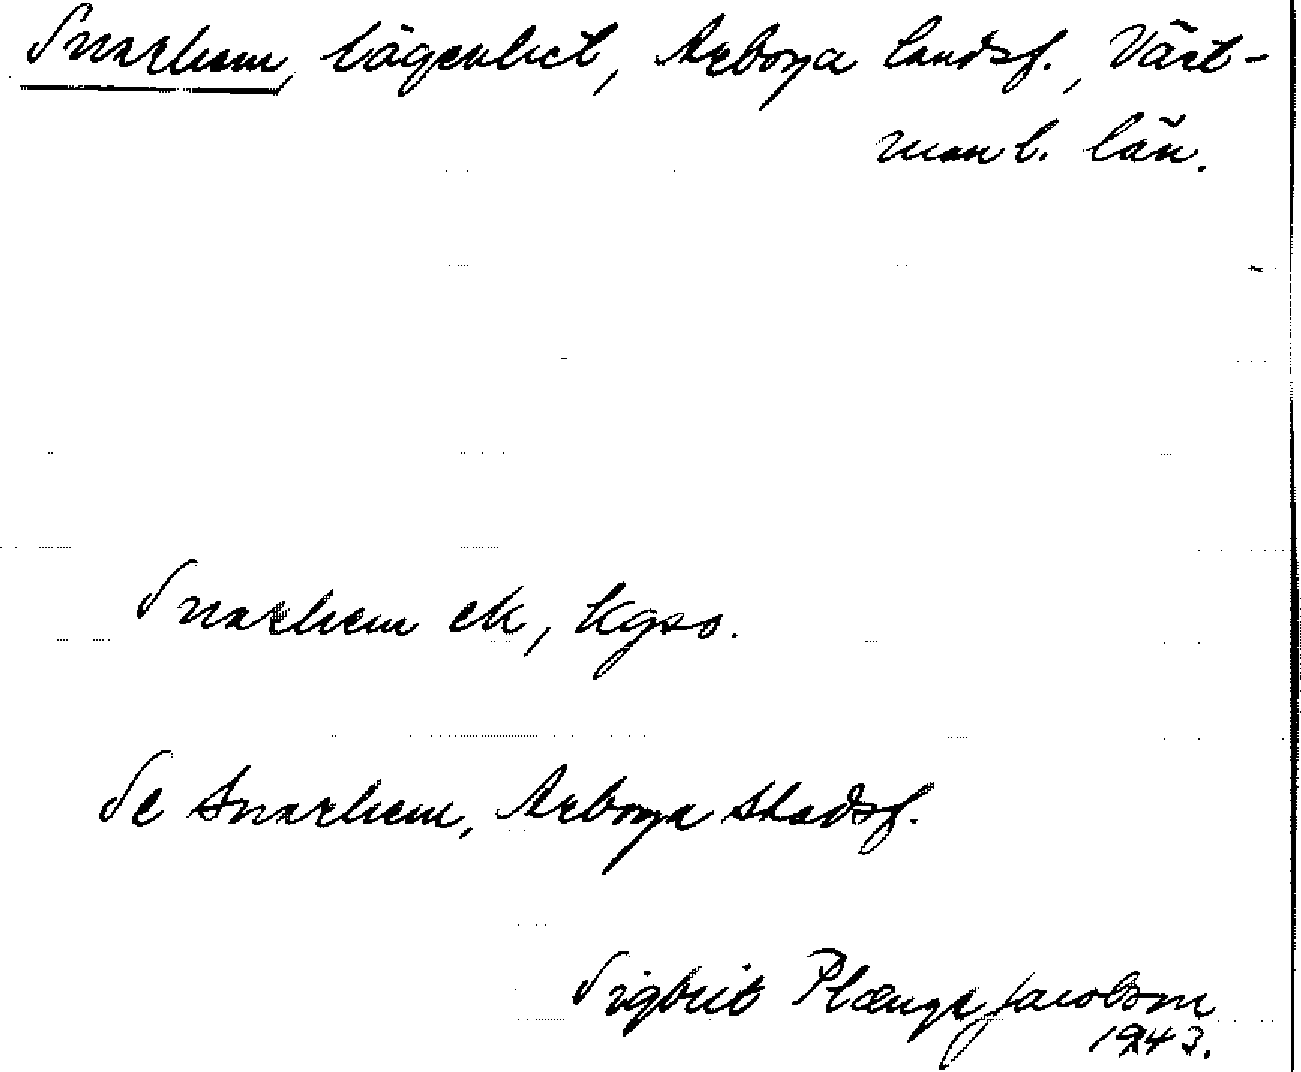 Snarhem, lägenhet, Arboya landsf., Väst-
manl. län.
Snarhem ek, kgso.
Se Snarhem, Arboga stadsf.
Sigbrit Plænge Jacobson
1943.